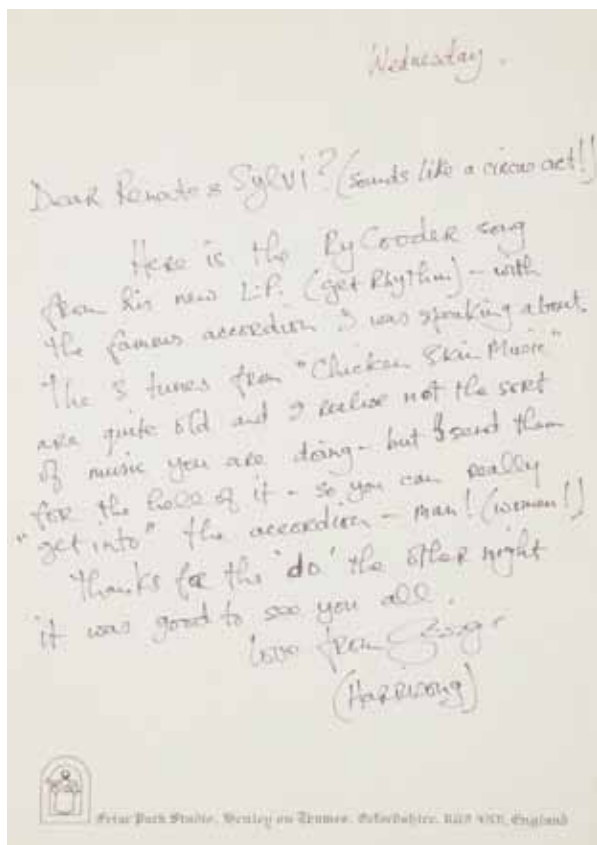 Wednesday.
Dear Renate & Sylvi? (sounds like a circus act!!)
Here is the Ry Cooder song
from his new L.P. (get Rhythm) - with
the famous accordion I was speaking about.
The 3 tunes from "Chicken Skin Music"
are quite old and I realise not the sort
of music you are doing - but I send them
for the hell of it - so you can really
"get into" the accordion - man! (woman!)
Thanks for the 'do' the other night
it was good to see you all.
love from George
(Harrisong)
Friar Park Studio, Henley on Thames, Oxfordshire, England